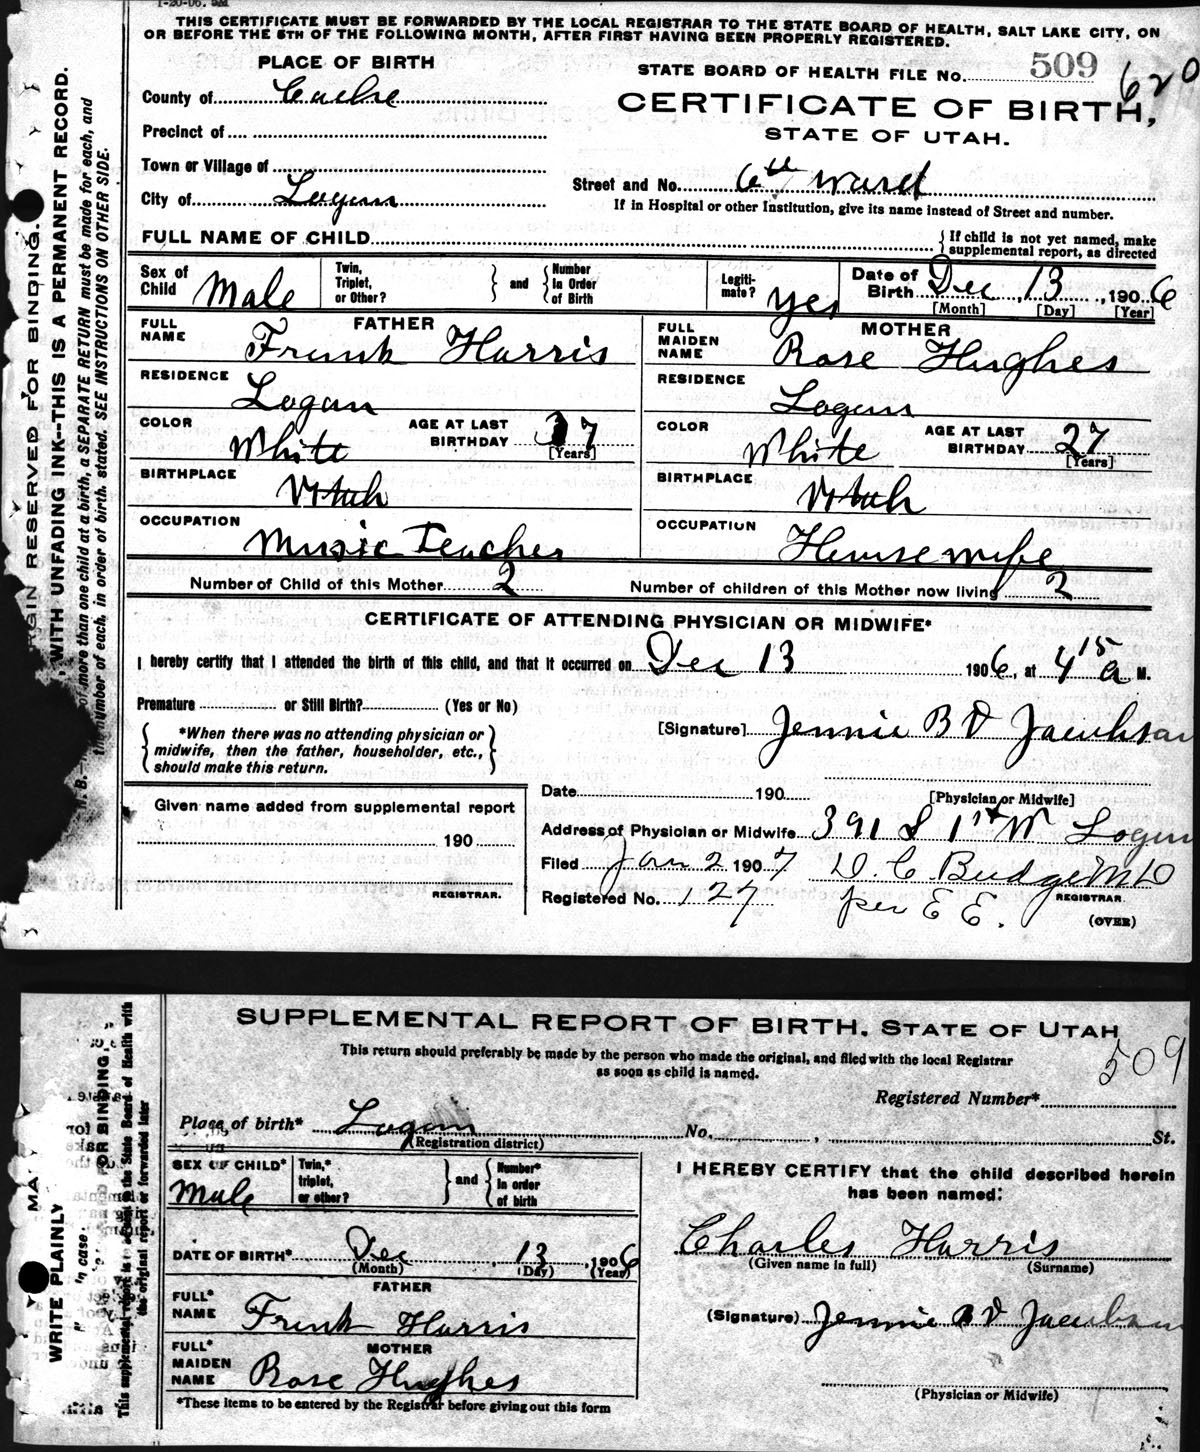 1-20-06. 5M
THIS CERTIFICATE MUST BE FORWARDED BY THE LOCAL REGISTRAR TO THE STATE BOARD OF HEALTH, SALT LAKE CITY, ON
OR BEFORE THE 5TH OF THE FOLLOWING MONTH, AFTER FIRST HAVING BEEN PROPERLY REGISTERED.
PLACE OF BIRTH
STATE BOARD OF HEALTH FILE No. 509 620
County of Cache
CERTIFICATE OF BIRTH,
STATE OF UTAH.
Precinct of
Town or Village of
Street and No. 6th Ward
City of Logan
If in Hospital or other Institution, give its name instead of Street and number.
FULL NAME OF CHILD { If child is not yet named, make supplemental report, as directed
Sex of Child Male Twin, Triplet, or Other? } and { Number In Order of Birth Legitimate? yes Date of Birth Dec 13, 1906
[Month] [Day] [Year]
FATHER MOTHER
FULL NAME Frank Harris FULL MAIDEN NAME Rose Hughes
RESIDENCE Logan RESIDENCE Logan
COLOR White AGE AT LAST BIRTHDAY 37 [Years] COLOR White AGE AT LAST BIRTHDAY 27 [Years]
BIRTHPLACE Utah BIRTHPLACE Utah
OCCUPATION Music Teacher OCCUPATION Housewife
Number of Child of this Mother 2 Number of children of this Mother now living 2
CERTIFICATE OF ATTENDING PHYSICIAN OR MIDWIFE*
I hereby certify that I attended the birth of this child, and that it occurred on Dec 13 1906, at 4 15 a M.
Premature or Still Birth? (Yes or No)
{ *When there was no attending physician or midwife, then the father, householder, etc., should make this return. }
[Signature] Jennie B D Jacobson
[Physician or Midwife]
Given name added from supplemental report
190
REGISTRAR.
Date 190
Address of Physician or Midwife 391 S 1st W Logan
Filed Jan 2 1907 D. C. Budge MD
REGISTRAR.
Registered No. 127 per E E.
(OVER)
RGIN RESERVED FOR BINDING.
, WITH UNFADING INK--THIS IS A PERMANENT RECORD.
N. B.— of more than one child at a birth, a SEPARATE RETURN must be made for each, and
the number of each, in order of birth, stated. SEE INSTRUCTIONS ON OTHER SIDE.
SUPPLEMENTAL REPORT OF BIRTH, STATE OF UTAH
This return should preferably be made by the person who made the original, and filed with the local Registrar
as soon as child is named.
509
Registered Number*
Place of birth* Logan No. , St.
(Registration district)
SEX OF CHILD* Male Twin,* triplet, or other? } and { Number* In order of birth
I HEREBY CERTIFY that the child described herein
has been named:
DATE OF BIRTH* Dec 13, 1906
(Month) (Day) (Year)
Charles Harris
(Given name in full) (Surname)
FATHER
FULL* NAME Frank Harris
(Signature) Jennie B D Jacobson
MOTHER
FULL* MAIDEN NAME Rose Hughes
(Physician or Midwife)
*These items to be entered by the Registrar before giving out this form
WRITE PLAINLY
FOR BINDING
This supplemental report is to the State Board of Health with
the original report or forwarded later